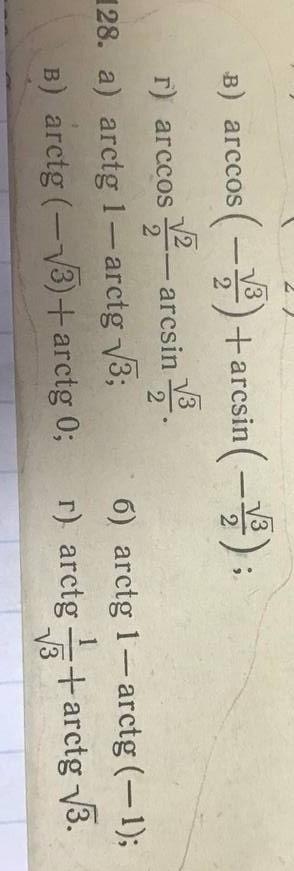 в) arccos(−√3/2) + arcsin(−√3/2);
г) arccos √2/2 − arcsin √3/2.
128. а) arctg 1 − arctg √3; б) arctg 1 − arctg (−1);
в) arctg (−√3) + arctg 0; г) arctg 1/√3 + arctg √3.